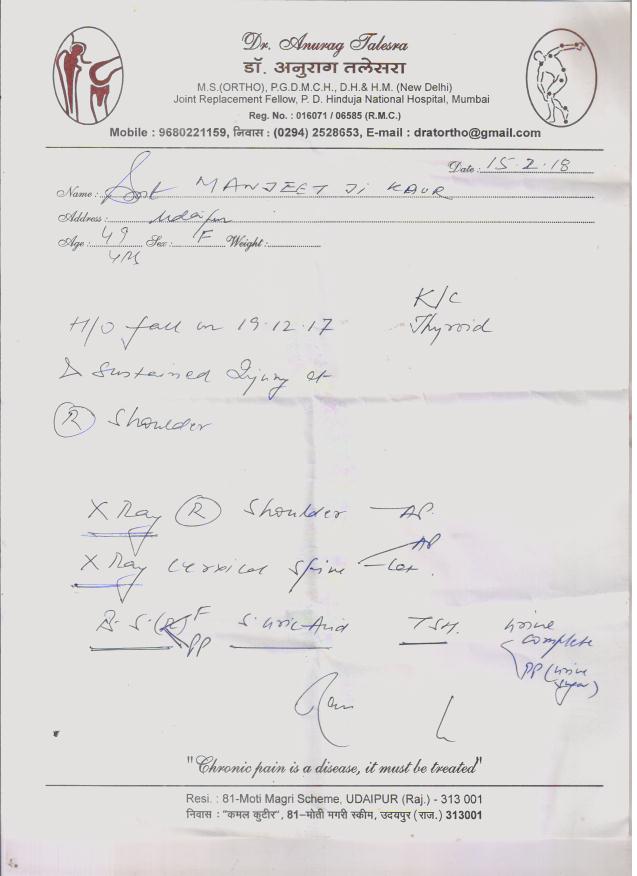 Dr. Anurag Talesra
डॉ. अनुराग तलेसरा
M.S.(ORTHO), P.G.D.M.C.H., D.H.& H.M. (New Delhi)
Joint Replacement Fellow, P. D. Hinduja National Hospital, Mumbai
Reg. No. : 016071 / 06585 (R.M.C.)
Mobile : 9680221159, निवास : (0294) 2528653, E-mail : dratortho@gmail.com
Date : 15.2.18
Name : Smt MANJEET Ji KAUR
Address : Udaipur
Age : 49 Sex : F Weight :
yrs
K/C
Thyroid
H/O fall on 19.12.17
& Sustained Injury at
(R) Shoulder
X Ray (R) Shoulder — AP
X Ray Cervical Spine AP
Lat.
B.S.(R) F
PP
S. Uric Acid TSH. Urine
complete
PP (urine
sugar)
"Chronic pain is a disease, it must be treated"
Resi. : 81-Moti Magri Scheme, UDAIPUR (Raj.) - 313 001
निवास : "कमल कुटीर", 81–मोती मगरी स्कीम, उदयपुर (राज.) 313001